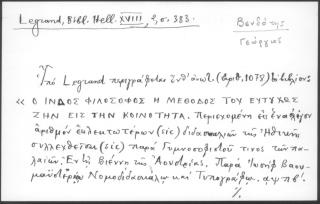 Legrand, Bibl. Hell. XVIII, 2, σ. 383.
Βενδότης
Γεώργιος
Ὑπὸ Legrand περιγράφεται (ἀριθ. 1078) βιβλίον
« Ο ΙΝΔΟΣ ΦΙΛΟΣΟΦΟΣ Η ΜΕΘΟΔΟΣ ΤΟΥ ΕΥΤΥΧΩΣ
ΖΗΝ ΕΙΣ ΤΗΝ ΚΟΙΝΟΤΗΤΑ. Περιεχομένη εἰς ἐναλίγον
ἀριθμὸν ἐκλεκτωτέρων (sic) διδασκαλιῶν τῆς Ἠθικῆς
συλλεχθεῖσα (sic) παρὰ Γυμνοσοφιστοῦ τινος τῶν πα-
λαιῶν. Ἐν τῇ Βιέννῃ τῆς Αουστρίας. Παρὰ Ἰωσὴφ Βαου-
μαϋστέρῳ Νομοδιδασκάλῳ καὶ Τυπογράφῳ. αψπβ΄.